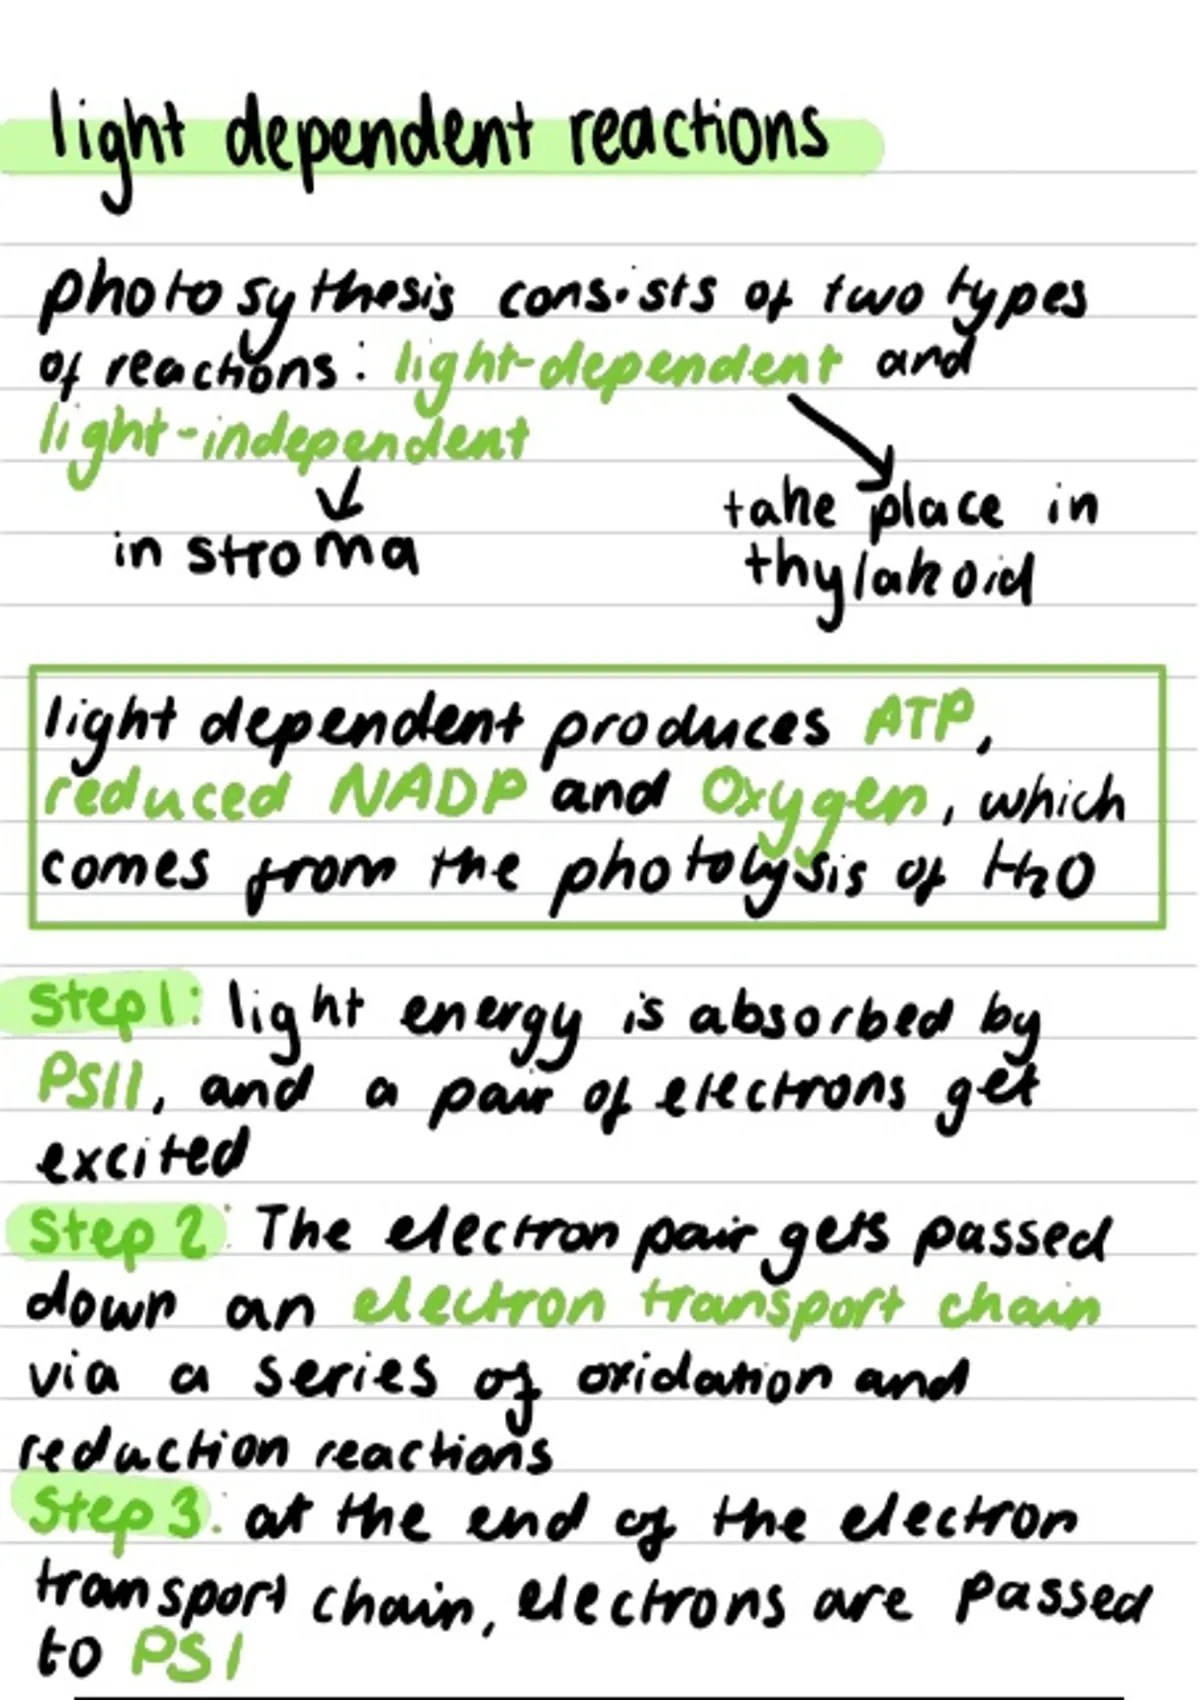 light dependent reactions
photosythesis consists of two types
of reactions: light-dependent and
light-independent
in stroma
take place in
thylakoid
light dependent produces ATP,
reduced NADP and Oxygen, which
comes from the photolysis of H2O
Step 1: light energy is absorbed by
PSII, and a pair of electrons get
excited
Step 2: The electron pair gets passed
down an electron transport chain
via a series of oxidation and
reduction reactions
Step 3: at the end of the electron
transport chain, electrons are passed
to PS1